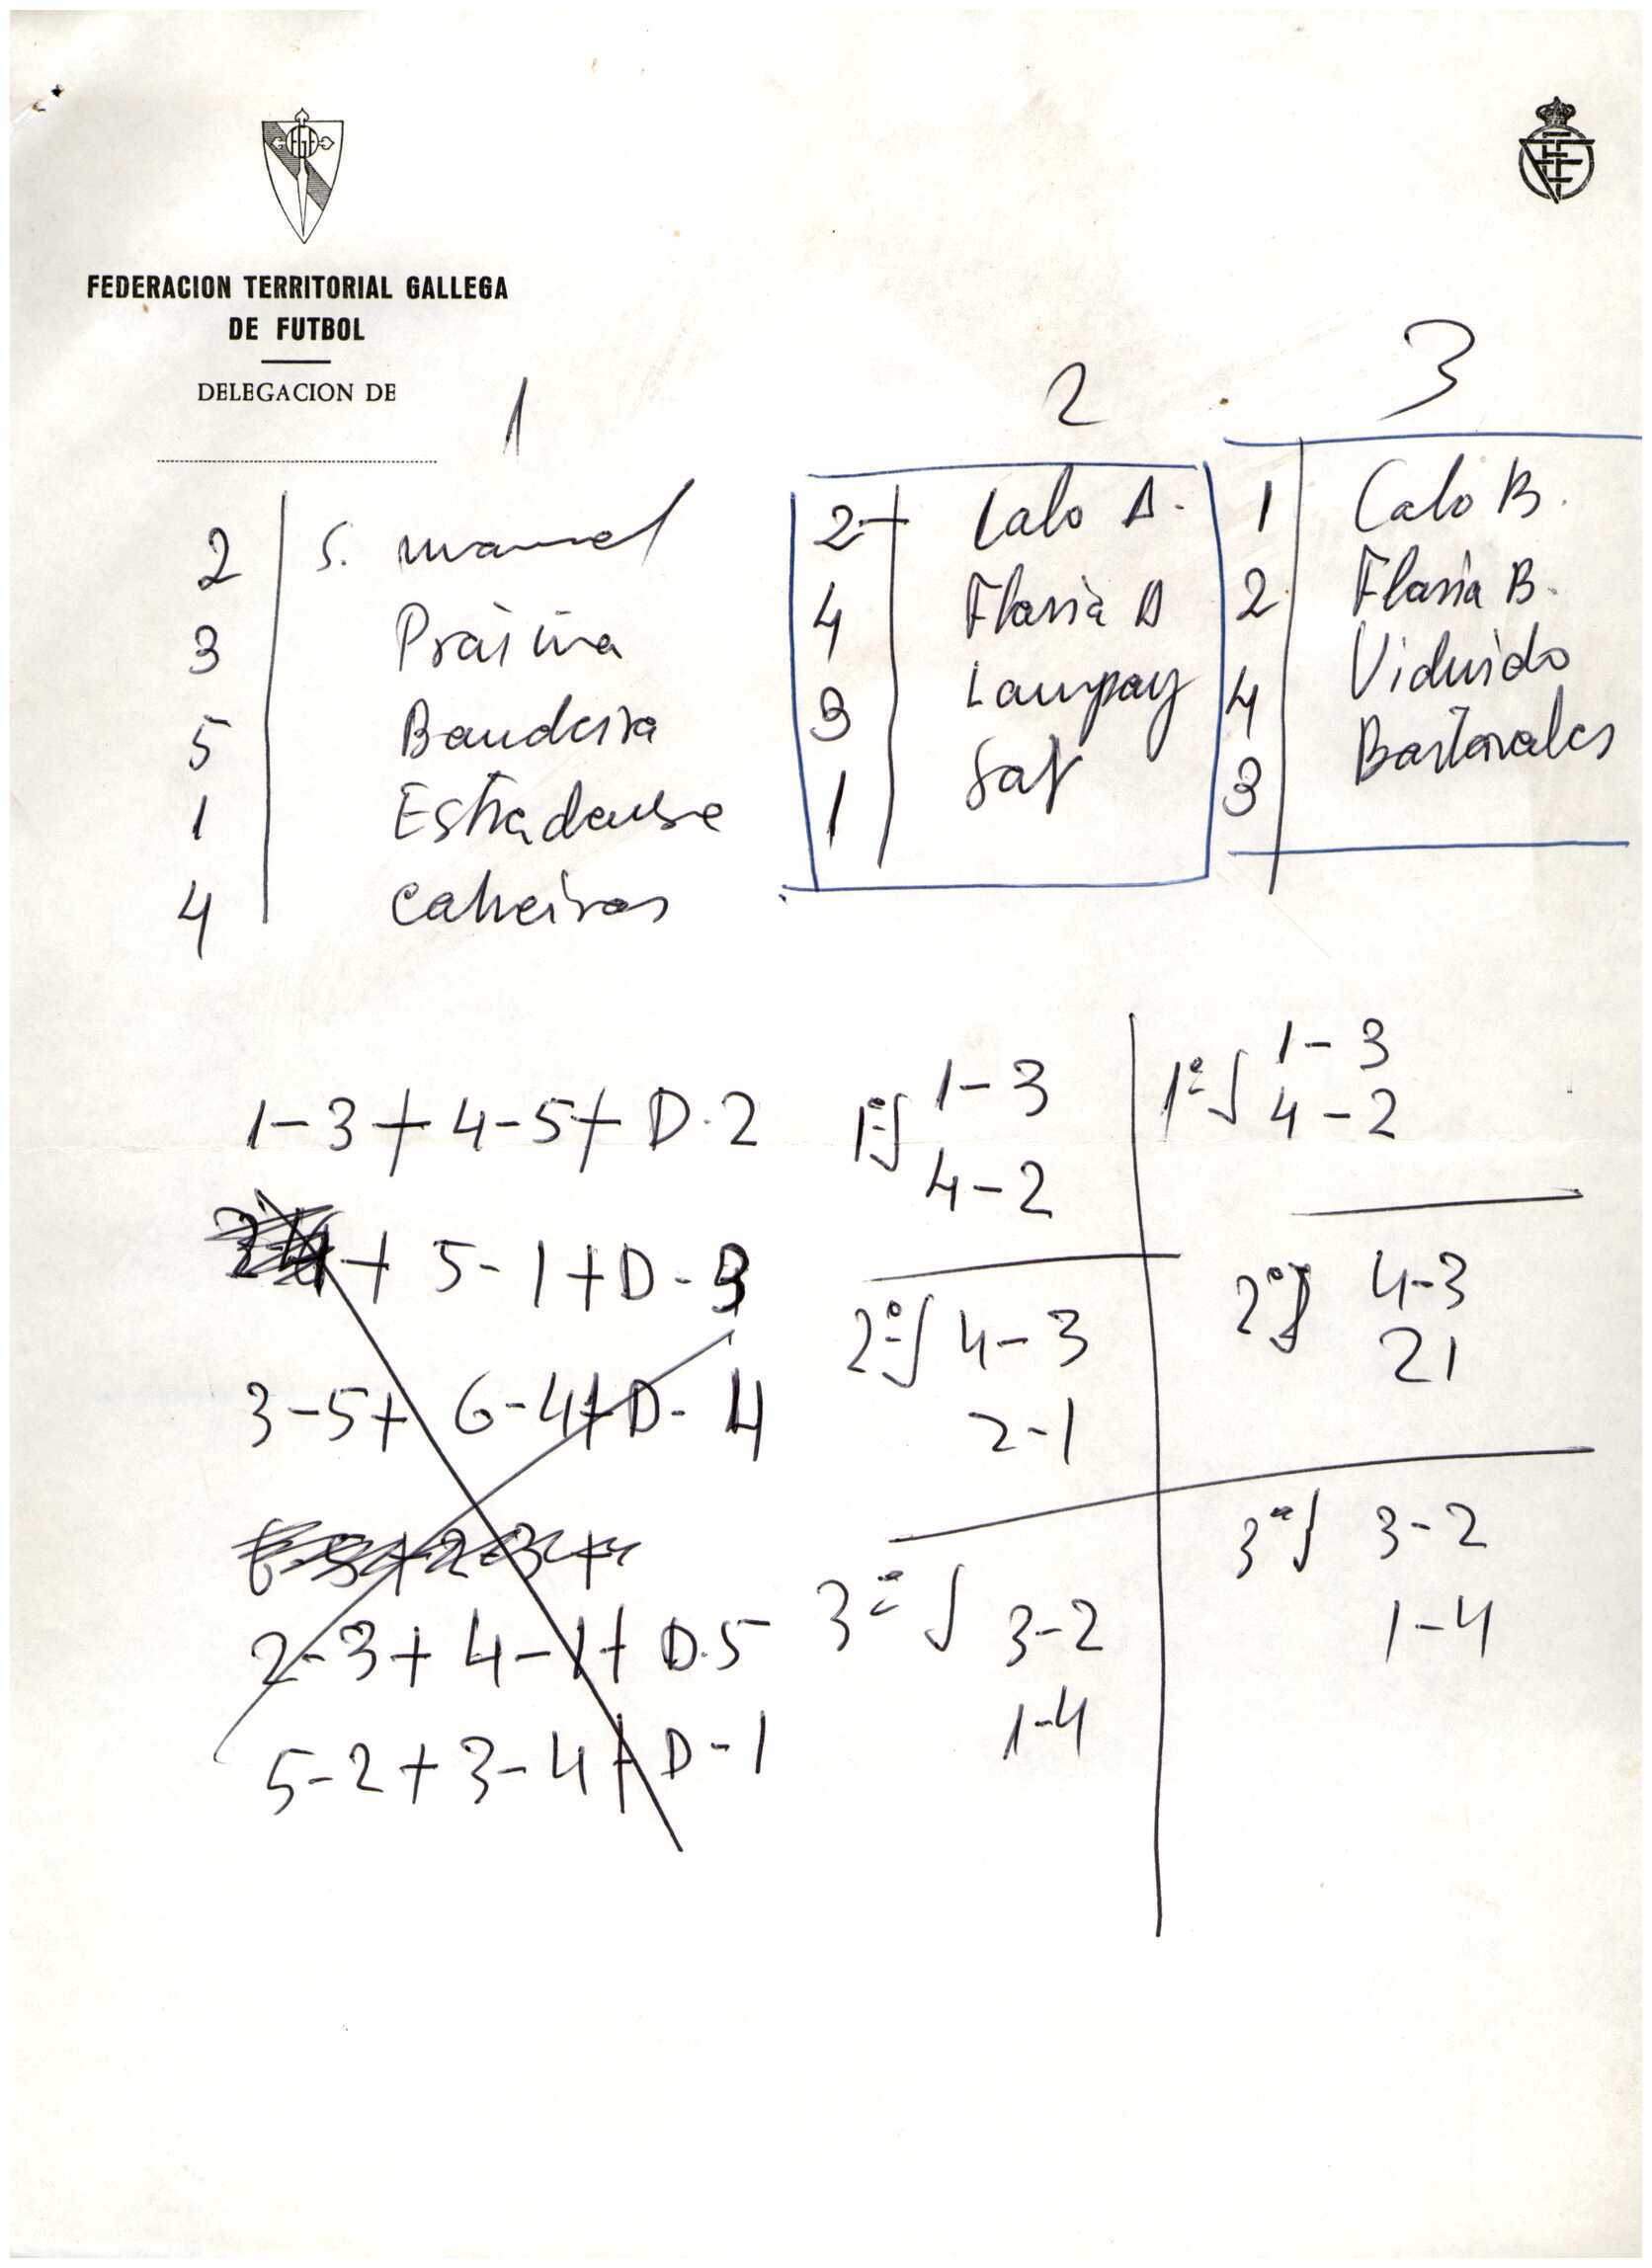 FEDERACION TERRITORIAL GALLEGA
DE FUTBOL
DELEGACION DE
1
2 S. Manuel
3 Praíña
5 Bandeira
1 Estradense
4 Calveiros
2
2 Calo A.
4 Flavia A
3 Lampay
1 Sat
3
1 Calo B.
2 Flavia B.
4 Viduido
3 Bastavales
1-3+4-5+D.2
+ 5-1+D-3
3-5+ 6-4+D-4
2-3+4-1+D.5
5-2+3-4+D-1
1ªJ 1-3
4-2
2ªJ 4-3
2-1
3ªJ 3-2
1-4
1ªJ 1-3
4-2
2ªJ 4-3
21
3ªJ 3-2
1-4